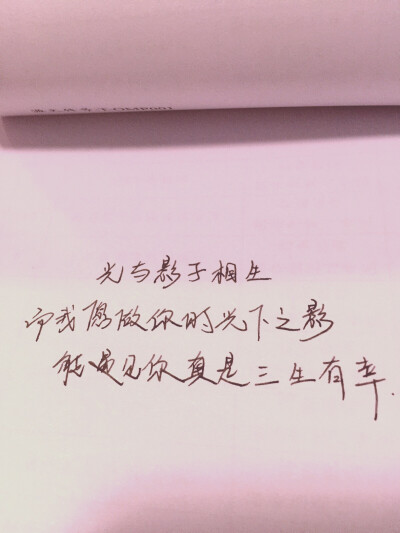 光与影子相生
而我愿做你时光下之影
能遇见你真是三生有幸.